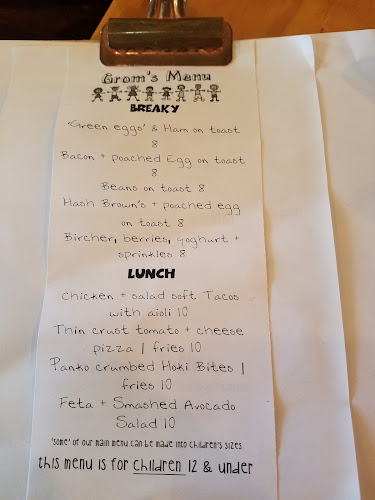 Grom's Menu
BREAKY
'Green eggs' & Ham on toast
8
Bacon + poached Egg on toast
8
Beans on toast 8
Hash Brown's + poached egg
on toast 8
Bircher, berries, yoghurt +
sprinkles 8
LUNCH
Chicken + salad soft Tacos
with aioli 10
Thin crust tomato + cheese
pizza | fries 10
Panko crumbed Hoki Bites |
fries 10
Feta + Smashed Avocado
Salad 10
'some' of our main menu can be made into children's sizes
this menu is for children 12 & under